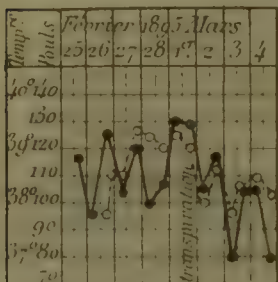 Tempre Pouls Février 1895 Mars
25 26 27 28 1er 2 3 4
40° 140
130
39° 120
110
38° 100
90
37° 80
70
transpiration